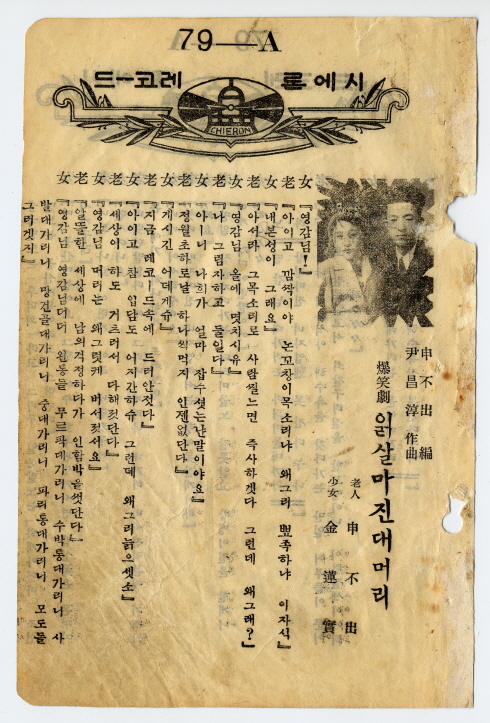 79—A
시에론 레코ー드
CHIERON
申不出 編
尹昌淳 作曲
爆笑劇 읽살마진대머리
老人 申不出
少女 金蓮實
女 『영감님!』
老 『아이고 깜짝이야 논꼬창이목소리냐 왜그리 뾰족하냐 이자식』
女 『내본성이 그래요』
老 『아서라 그목소리로 사람찔느면 즉사하겟다 그런데 왜그래?』
女 『영감님 올에 멫치시유』
老 『나 그림자하고 둘일다』
女 『아ー니 나희가 얼마 잡수섯는난말이야요』
老 『정월초하로날 하나씩먹지 인젠없단다』
女 『게시긴 어데게슈』
老 『지금 레코ー드속에 드러안젓다』
女 『아이고 참 입담도 어지간하슈 그런데 왜그리늙으셋소』
老 『세상이 하도 거츠러서 다해젓단다』
女 『영감님 머리는 왜그렇케 버서젓서요』
老 『알뜰한 세상에 남의걱정하다가 인합박을썻단다』
女 『영감님 영감님더더 왼동들 무르팍대가리니 수박통대가리니 사
발대가리니 망건골대가리니 중대가리니 파리통대가리니 모도들
그러겟지』